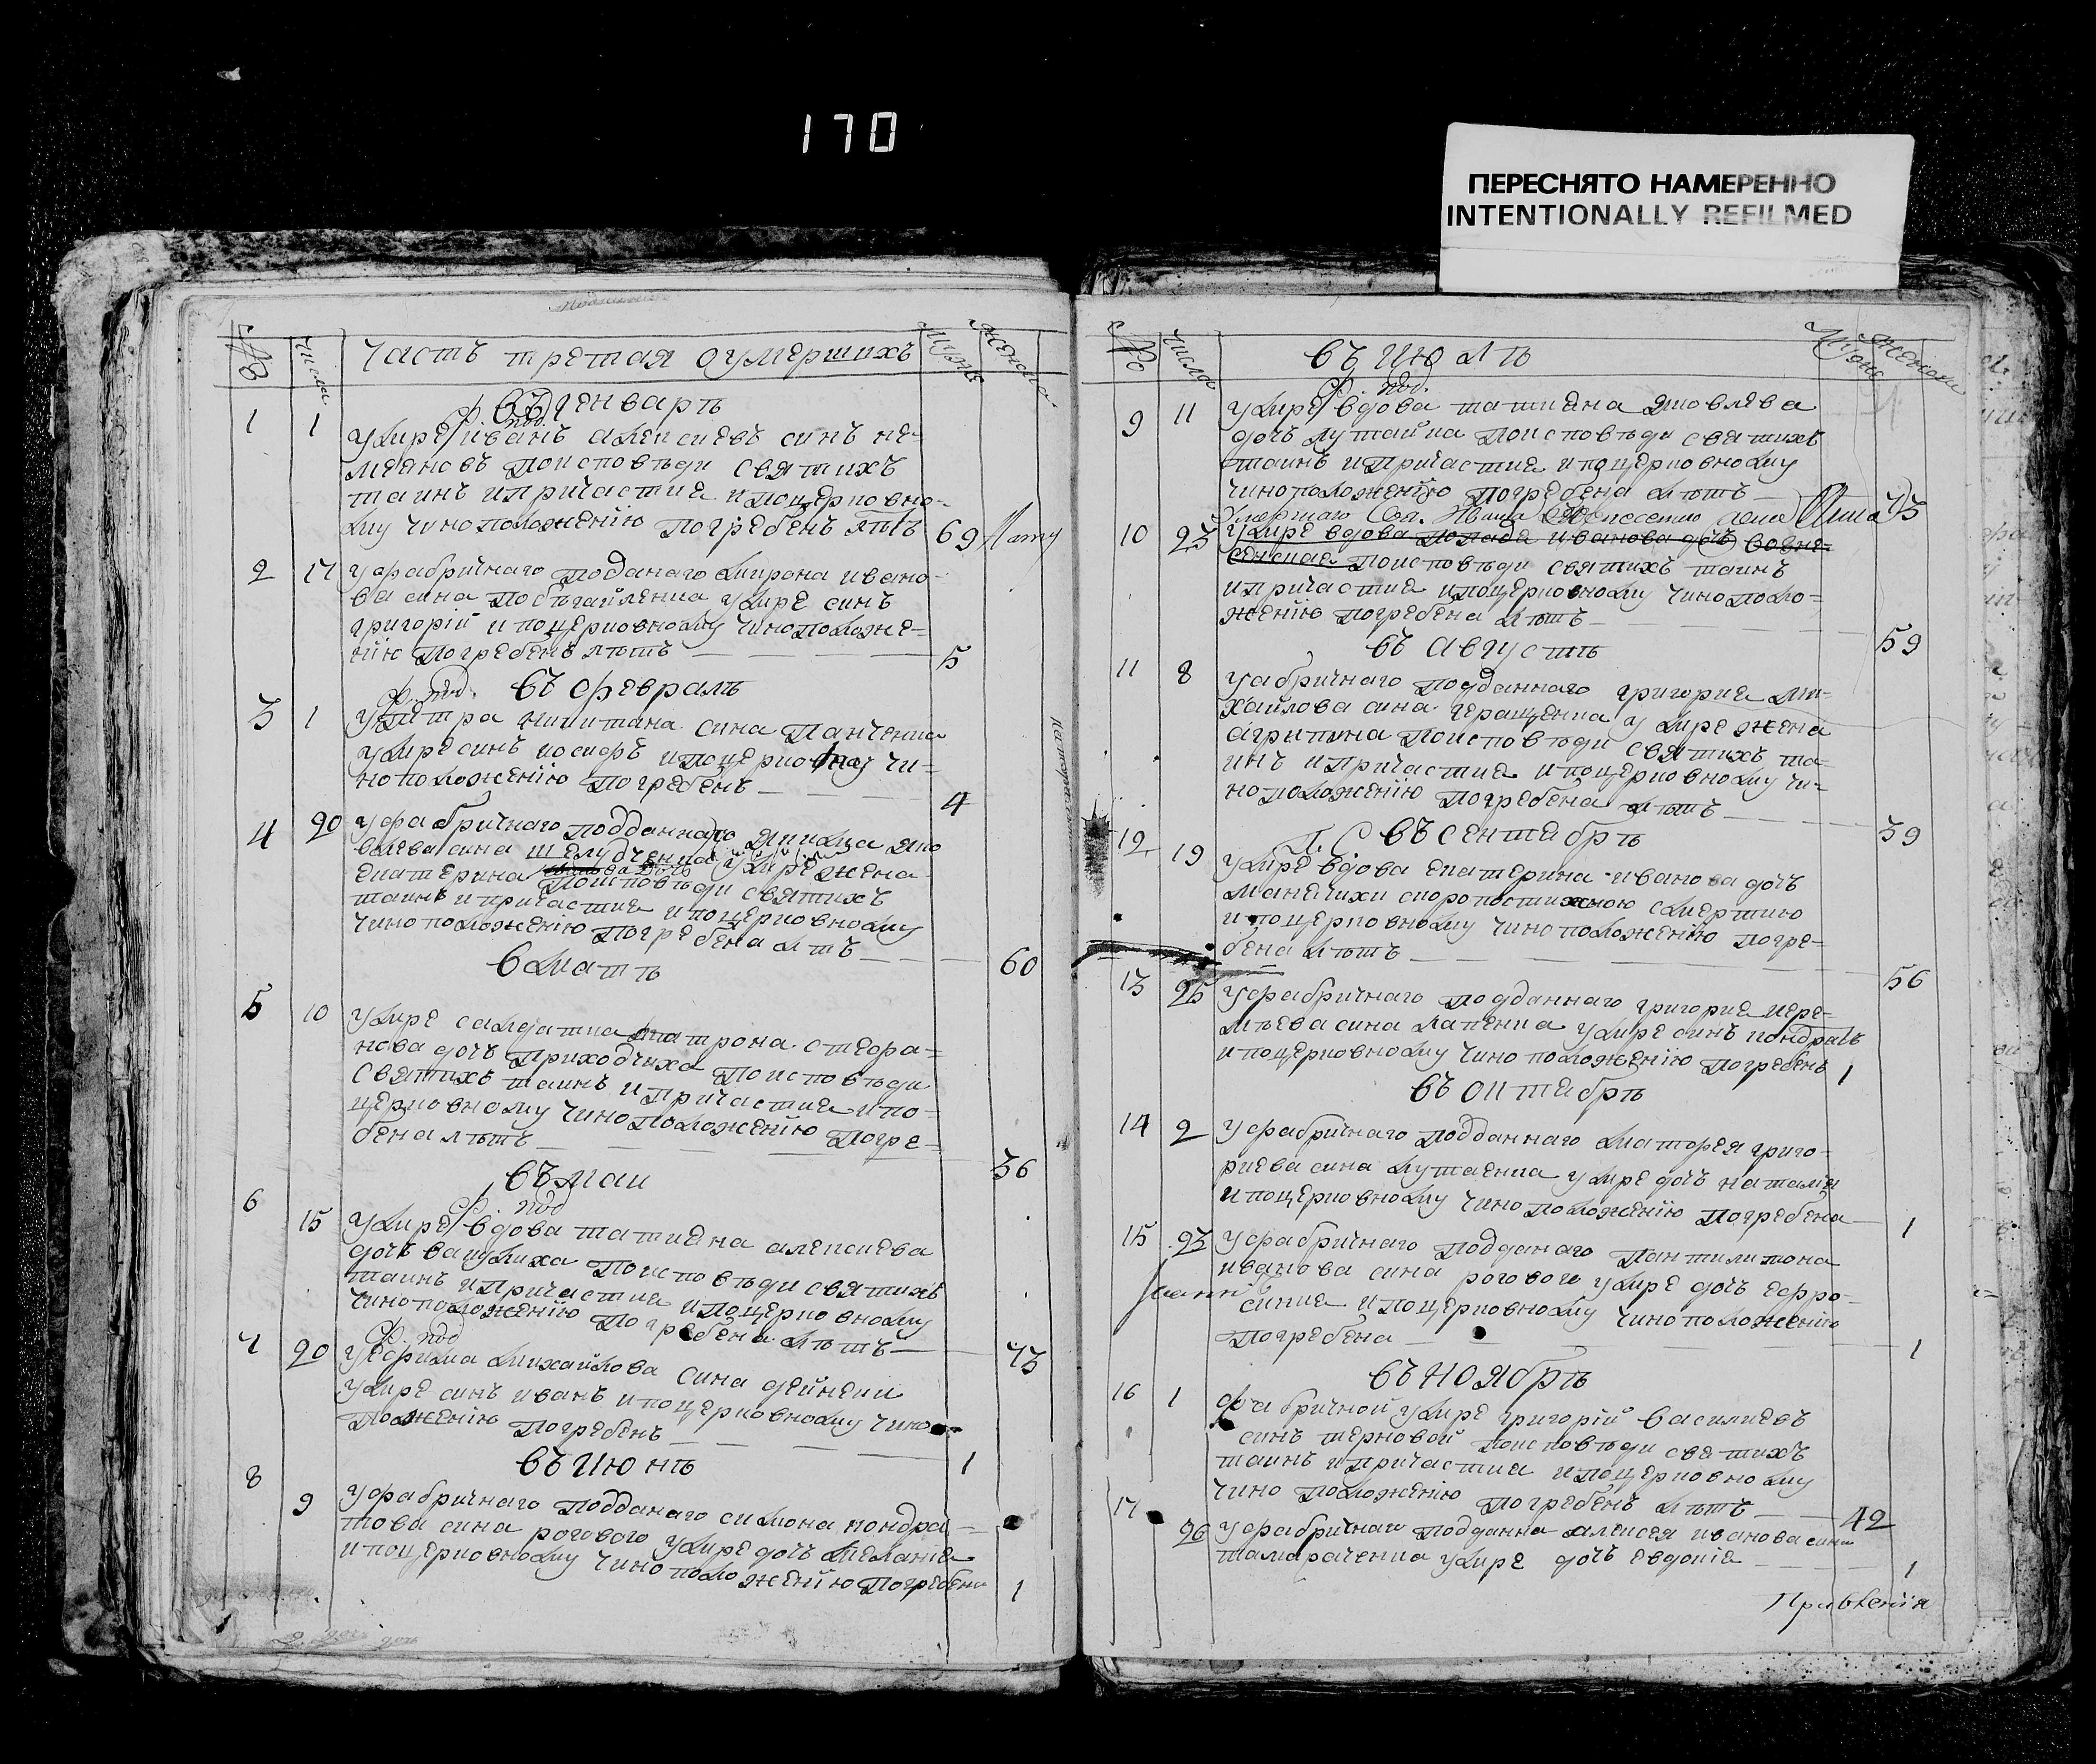 170
ПЕРЕСНЯТО НАМЕРЕННО
INTENTIONALLY REFILMED
№
числа
часть третая оумершихъ
мужс
женска
въ генварѣ
1 1 умре ф. под. иванъ алексиевъ синъ не-
поисповѣди святихъ
таинъ ипричастия ипоцерковно-
му чиноположенію погребенъ лѣтъ 69
2 17 уфабричнаго поданаго мирона ивано-
ва сина умре синъ
григорій ипоцерковному чиноположе-
нію погребенъ лѣтъ 5
въ февралѣ
3 1 ф. под. упетра никитина сина панченка
умре синъ иосифъ ипоцерковному чи-
ноположенію погребенъ 4
4 20 уфабричнаго подданнаго якима яко
влева сина шелудченка умре жена
екатерина поисповѣди святихъ
таинъ ипричастия ипоцерковному
чиноположенію погребена лѣтъ 60
вмартѣ
5 10 умре салдатка матрона стефа-
нова дочъ приходчиха поисповѣди
святихъ таинъ ипричастия ипо-
церковному чиноположенію погре-
бена лѣтъ 36
въ маи
6 15 умре ф. под вдова татияна алексиева
дочъ поисповѣди святихъ
таинъ ипричастия ипоцерковному
чиноположенію погребена лѣтъ 73
7 20 ф. под уефима михайлова сина дейнеки
умре синъ иванъ ипоцерковному чино-
положенію погребенъ 1
въ июнѣ
8 9 уфабричнаго подданаго симона кондра-
това сина рогового умре дочъ мелания
ипоцерковному чиноположенію погребена 1
№
числа
въ июлѣ
мужс
женска
9 11 умре ф. под. вдова татияна яковлева
дочъ лутайка поисповѣди святихъ
таинъ ипричастия ипоцерковному
чиноположенію погребена лѣтъ 73
Умершаго Свя. Ивана жена Анна
10 23 умре вдова попадя иванова дочъ возне-
сенская поисповѣди святихъ таинъ
ипричастия ипоцерковному чинополо-
женію погребена лѣтъ 59
въ августѣ
11 8 уабричнаго подданнаго григория ми-
хайлова сина геращенка умре жена
агрипина поисповѣди святихъ та-
инъ ипричастия ипоцерковному чи-
ноположенію погребена лѣтъ 39
въ сентябрѣ
12 19 умре вдова екатерина иванова дочъ
скоропостижною смертию
ипоцерковному чиноположенію погре-
бена лѣтъ 56
13 25 уфабричнаго подданнаго григория иере-
мѣева сина лапенка умре синъ кондратъ
ипоцерковному чиноположенію погребенъ 1
въ октябрѣ
14 2 уфабричнаго подданнаго матфея григо-
риева сина лутаенка умре дочъ наталия
ипоцерковному чиноположенію погребена 1
15 23 уфабричнаго подданаго пантилимона
иванова сина рогового умре дочъ ефро-
синия ипоцерковному чиноположенію
погребена 1
въ ноябрѣ
16 1 фабричной умре григорій василиевъ
синъ терновой поисповѣди святихъ
таинъ ипричастия ипоцерковному
чиноположенію погребенъ лѣтъ 42
17 26 уфабричнаго подданна алексея иванова сина
тамараченка умре дочъ евдокия 1